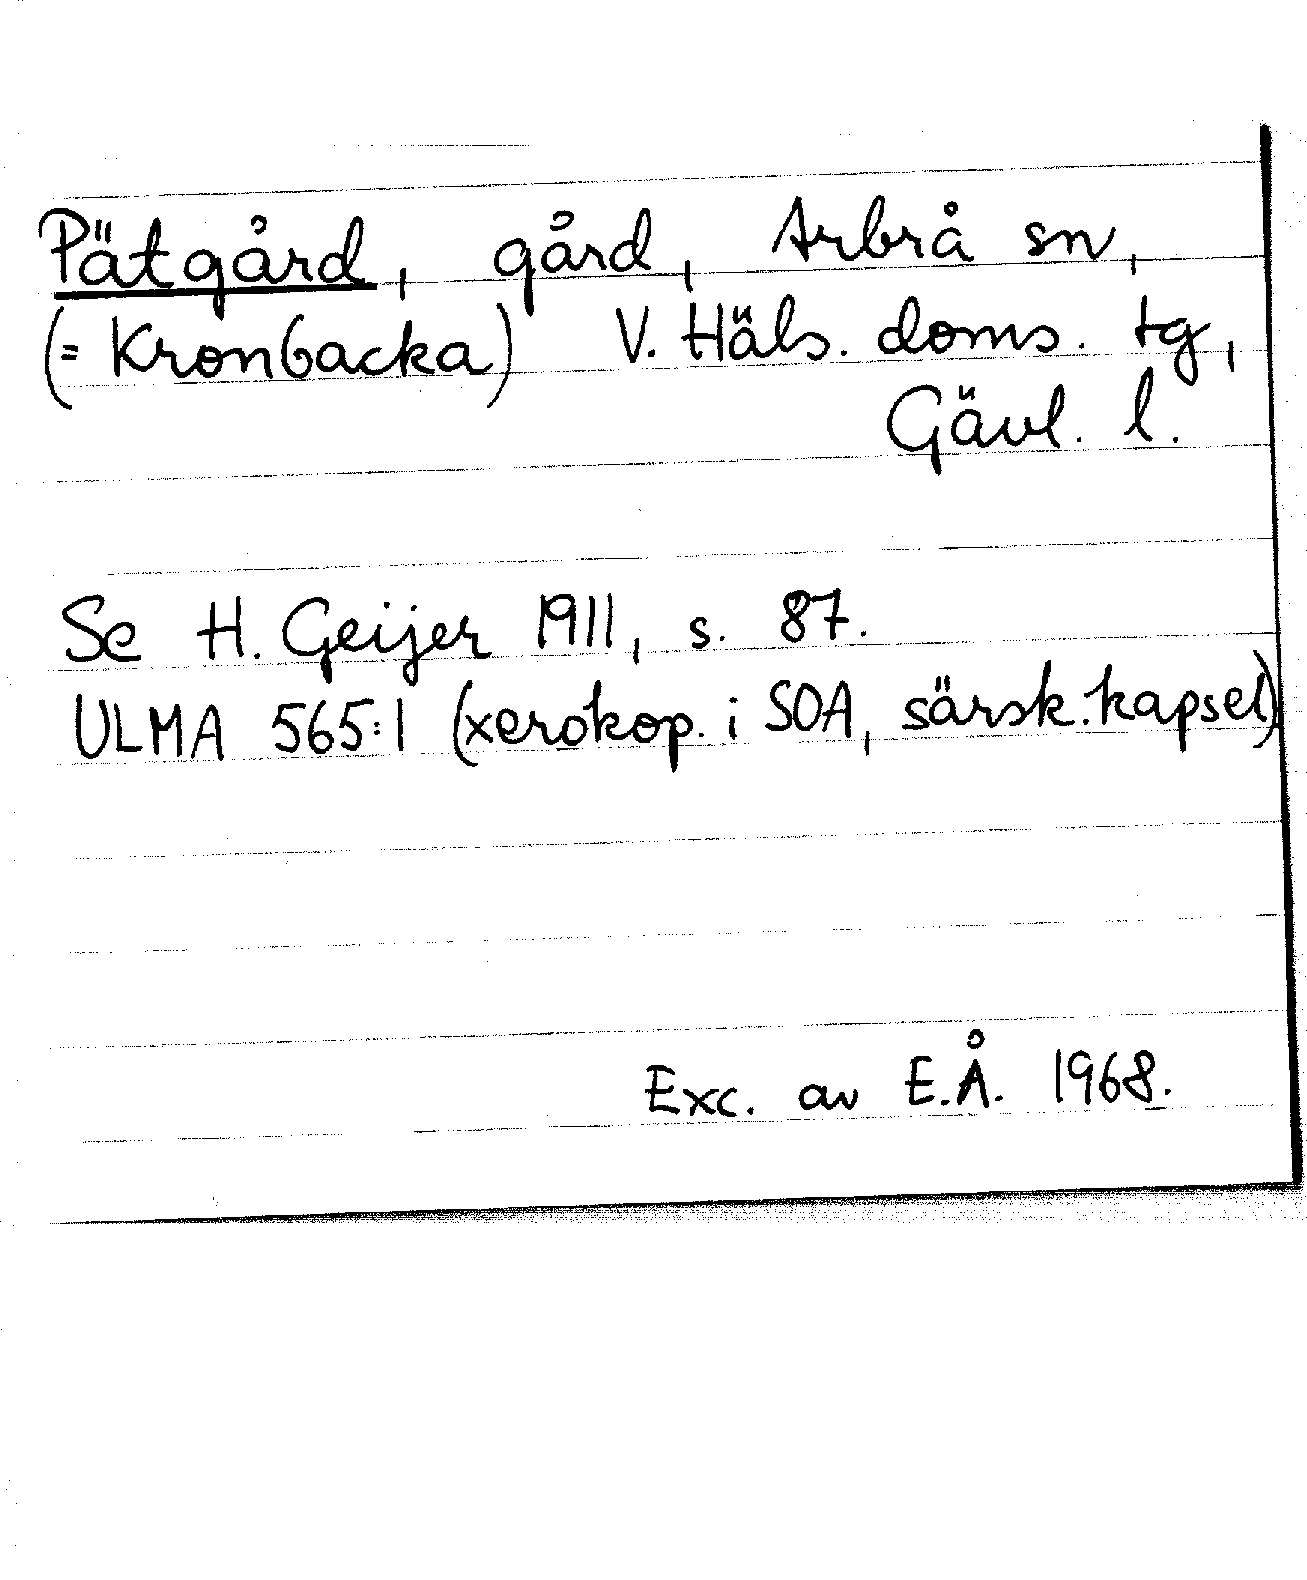 Pätgård, gård, Arbrå sn,
(= Kronbacka) V. Häls. doms. tg,
Gävl. l.
Se H. Geijer 1911, s. 87.
ULMA 565:1 (xerokop. i SOA, särsk. kapsel)
Exc. av E.Å. 1968.